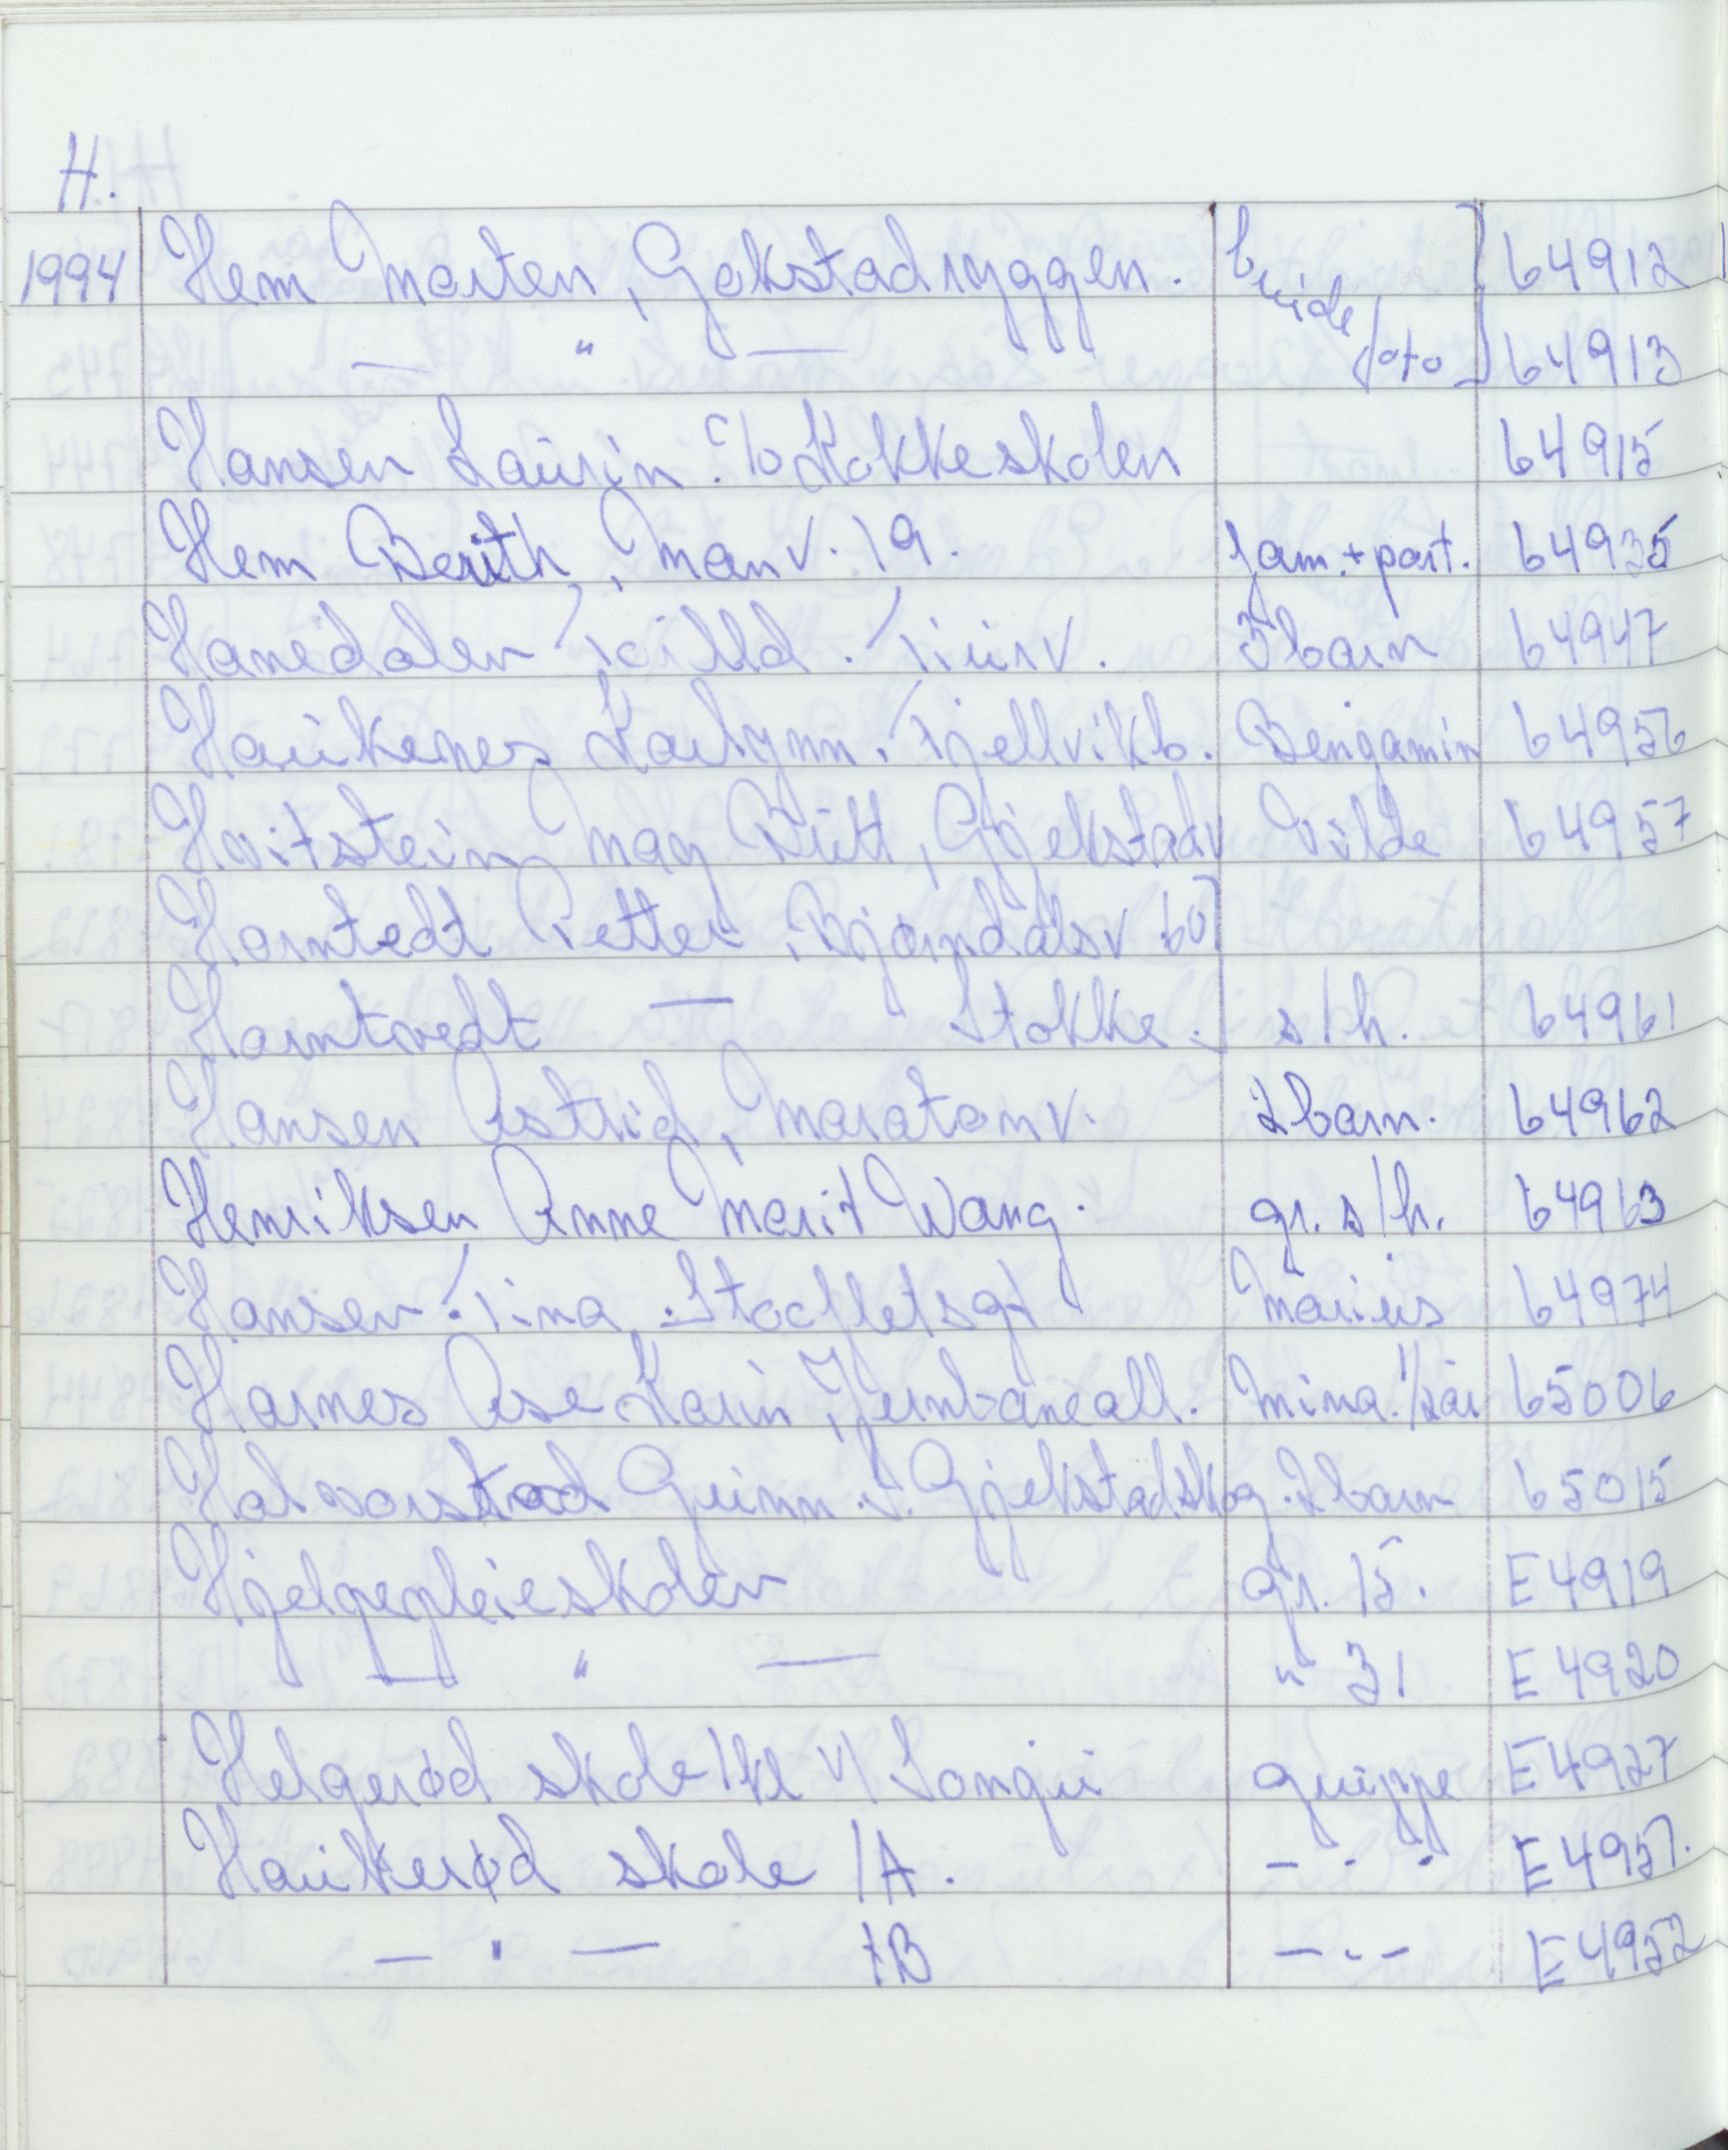 H.
1994 Hem Morten, Gokstadryggen. brude 64912
— " — foto 64913
Hansen Laurin c/o Kokkeskolen 64915
Hem Berith, Man v. 19. fam. + port. 64935
Hanedalen Toilld. Tiurv. 3 barn 64947
Haukenes Karlynn. Fjellvikb. Benjamin 64956
Hvitstein May Britt, Gjekstadv Vilde 64957
Horntedt Petter, Bjørndalsv 60
Horntvedt — Stokke. s/h. 64961
Hansen Astrid, Maratonv. 2 barn. 64962
Henriksen Anne Marit Wang. gr. s/h. 64963
Hansen Tina. Stockfletsgt Marius 64974
Harnes Åse Karin, Jernbaneall. Mina. 1/2 år 65006
Halvorstad Gunn. S. Gjekstadskog. 2 barn 65015
Hjelpepleieskolen gr. 15. E 4919
— " — " 31 E 4920
Helgerød skole 1 kl v/ Songii gruppe E 4927
Haukerød skole 1A. - " - E 4951.
— " — 1B - " - E 4952